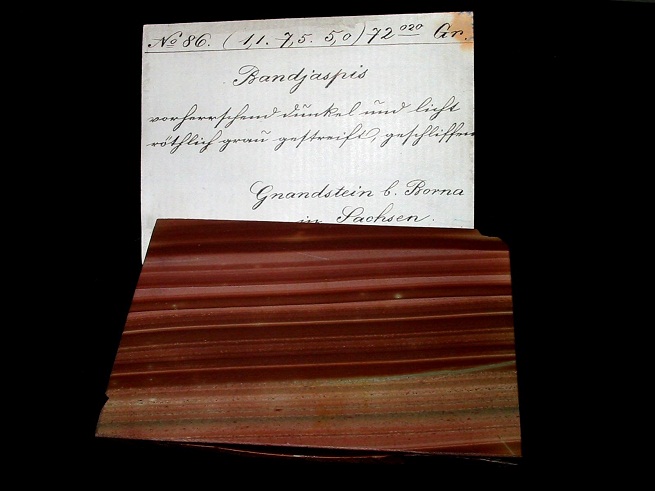 No 86. (1,1. 7,5. 5,0) 72 020 Gr.
Bandjaspis
vorherrschend dunkel und licht
röthlich grau gestreift, geschliffen
Gnandstein b. Borna
in Sachsen.